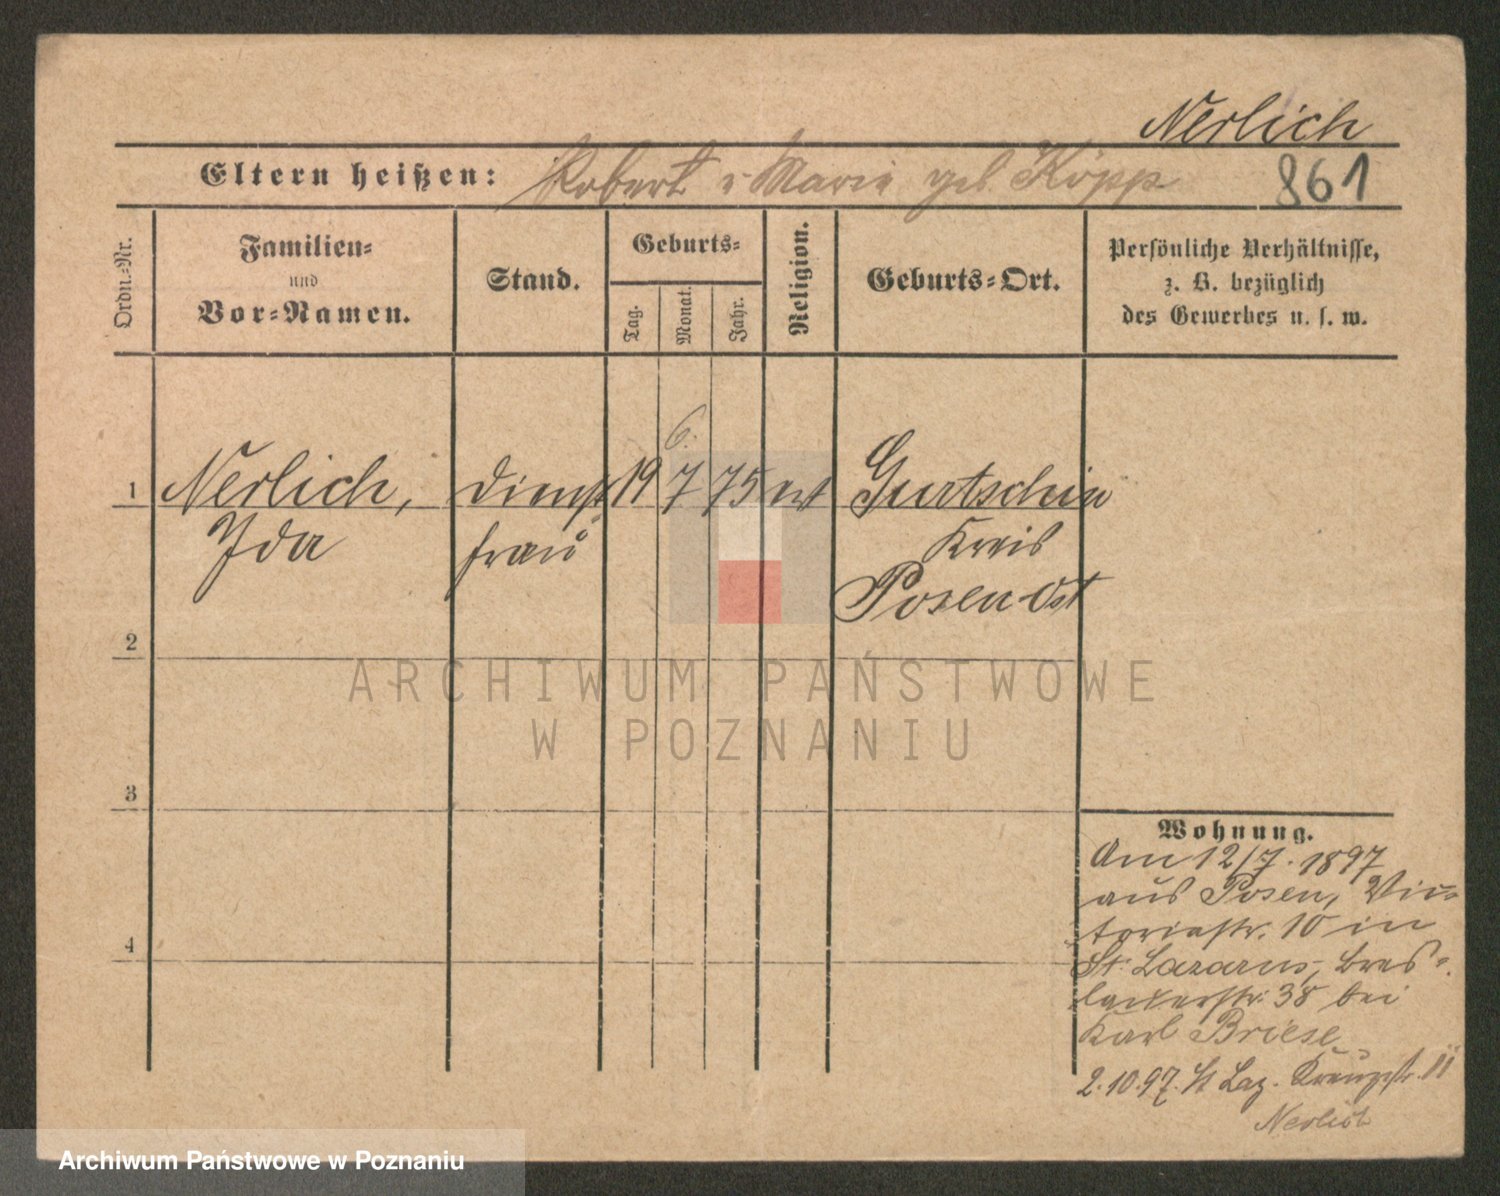 Nerlich
Eltern heißen: Robert u Marie geb. Köpp
861
Ordn.-Nr.
Familien-
und
Vor-Namen.
Stand.
Geburts-
Tag.
Monat.
Jahr.
Religion.
Geburts-Ort.
Persönliche Verhältnisse,
z. B. bezüglich
des Gewerbes u. s. w.
6.
1 Nerlich, Dienst 19 7 75 ev Gurtschin
Ida frau Kreis
Posen-Ost
2
3
4
ARCHIWUM PAŃSTWOWE
W POZNANIU
Wohnung.
Am 12/7. 1897
aus Posen, Vic-
toriastr. 10 in
St. Lazarus, Bres-
lauerstr. 38 bei
Karl Briese
2.10.97. St Laz. Kreuzstr. 11
Nerlich
Archiwum Państwowe w Poznaniu